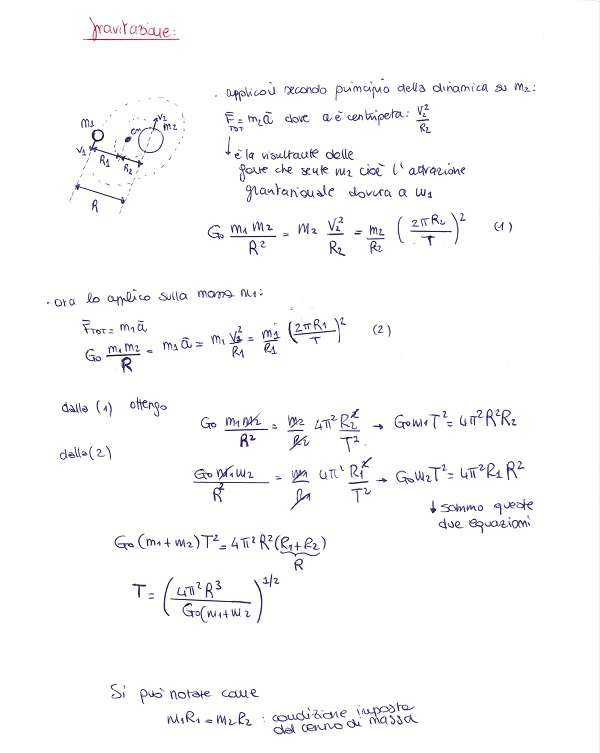 gravitazione:
· applico il secondo principio della dinamica su m2:
F̄TOT = m2ā dove a è centripeta: V2²/R2
↓ è la risultante delle
forze che sente m2 cioè l'attrazione
gravitazionale dovuta a m1
m1 V1 R1 cm V2 m2 R2 R
G0 m1 m2/R² = m2 V2²/R2 = m2/R2 (2πR2/T)² (1)
· ora lo applico sulla massa m1:
F̄TOT = m1ā
G0 m1 m2/R = m1ā = m1 V1²/R1 = m1/R1 (2πR1/T)² (2)
dalla (1) ottengo
G0 m1m2/R² = m2/R2 4π² R2²/T² → G0m1T² = 4π²R²R2
dalla (2)
G0 m1m2/R² = m1/R1 4π² R1²/T² → G0m2T² = 4π²R1R²
↓ sommo queste
due equazioni
G0(m1+m2)T² = 4π²R²(R1+R2)
R
T = (4π²R³/G0(m1+m2)^1/2
Si può notare come
m1R1 = m2R2 : condizione imposta
dal centro di massa